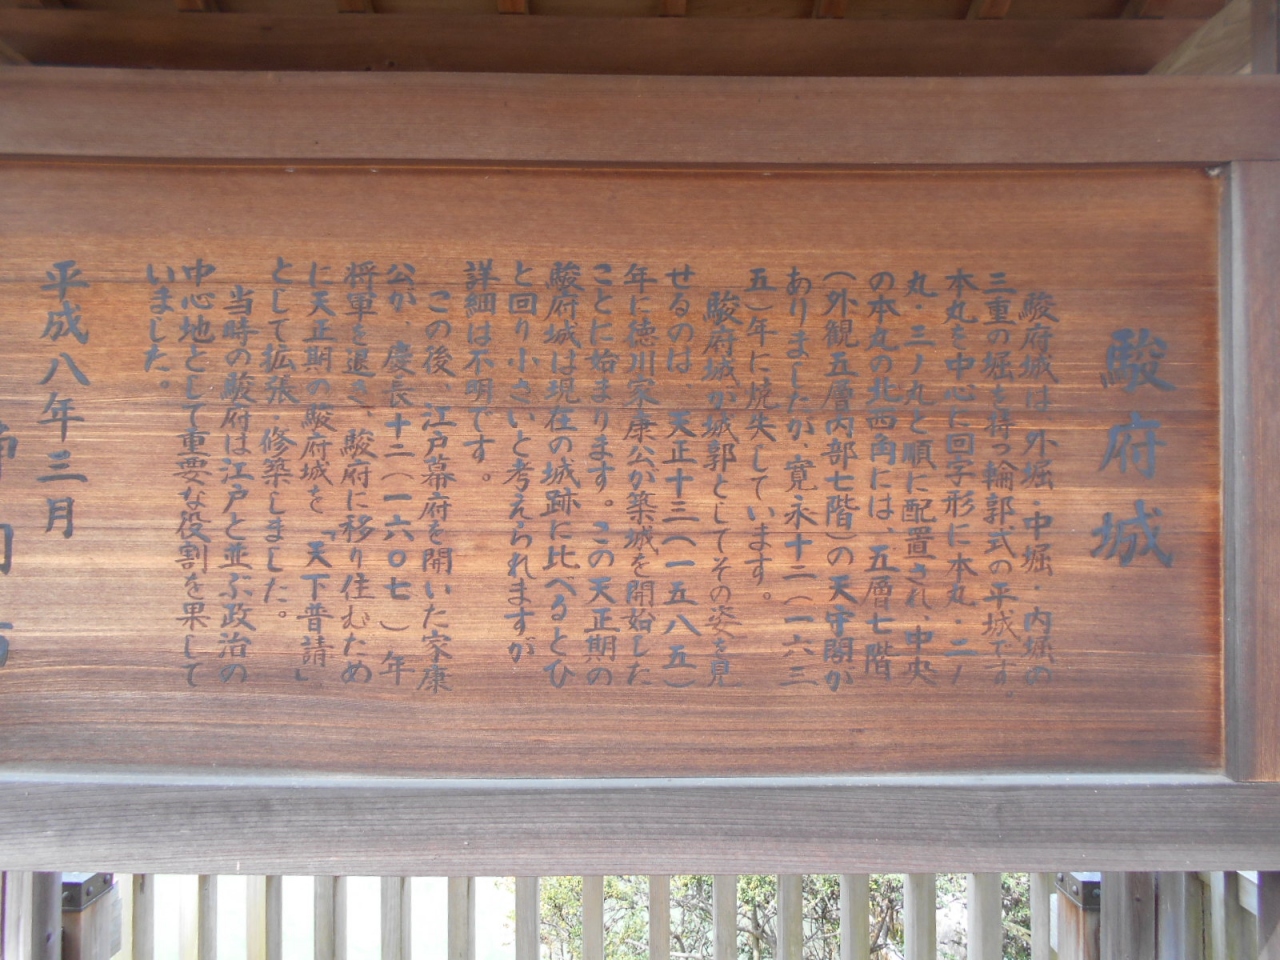 駿府城
駿府城は外堀・中堀・内堀の
三重の堀を持つ輪郭式の平城です。
本丸を中心に回字形に本丸・二ノ
丸・三ノ丸と順に配置され、中央
の本丸の北西角には、五層七階
(外観五層内部七階)の天守閣が
ありましたが、寛永十二(一六三
五)年に焼失しています。
駿府城が城郭としてその姿を見
せるのは、天正十三(一五八五)
年に徳川家康公が築城を開始した
ことに始まります。この天正期の
駿府城は現在の城跡に比べるとひ
と回り小さいと考えられますが
詳細は不明です。
この後、江戸幕府を開いた家康
公が、慶長十二(一六〇七)年
将軍を退き、駿府に移り住むため
に天正期の駿府城を「天下普請」
として拡張・修築しました。
当時の駿府は江戸と並ぶ政治の
中心地として重要な役割を果して
いました。
平成八年三月